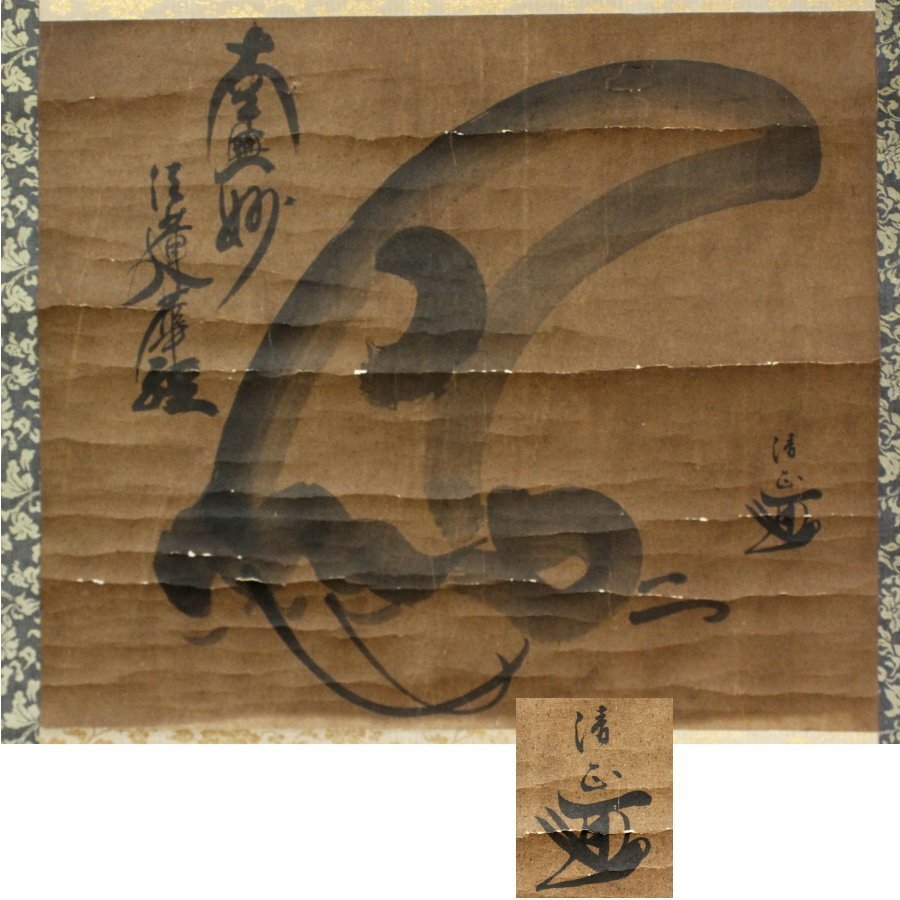 南無妙
法蓮華経
清正
清正